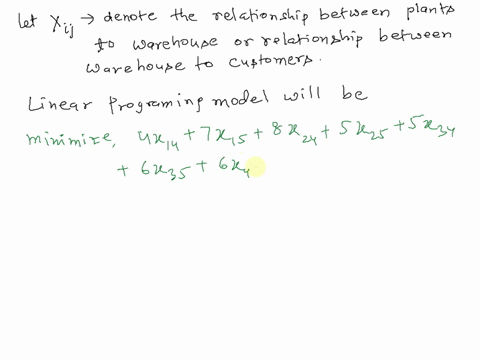 let Xij → denote the relationship between plants
to warehouse or relationship between
warehouse to customers.
Linear Programing model will be
minimize, 4x14 + 7x15 + 8x24 + 5x25 + 5x34
+ 6x35 + 6x4